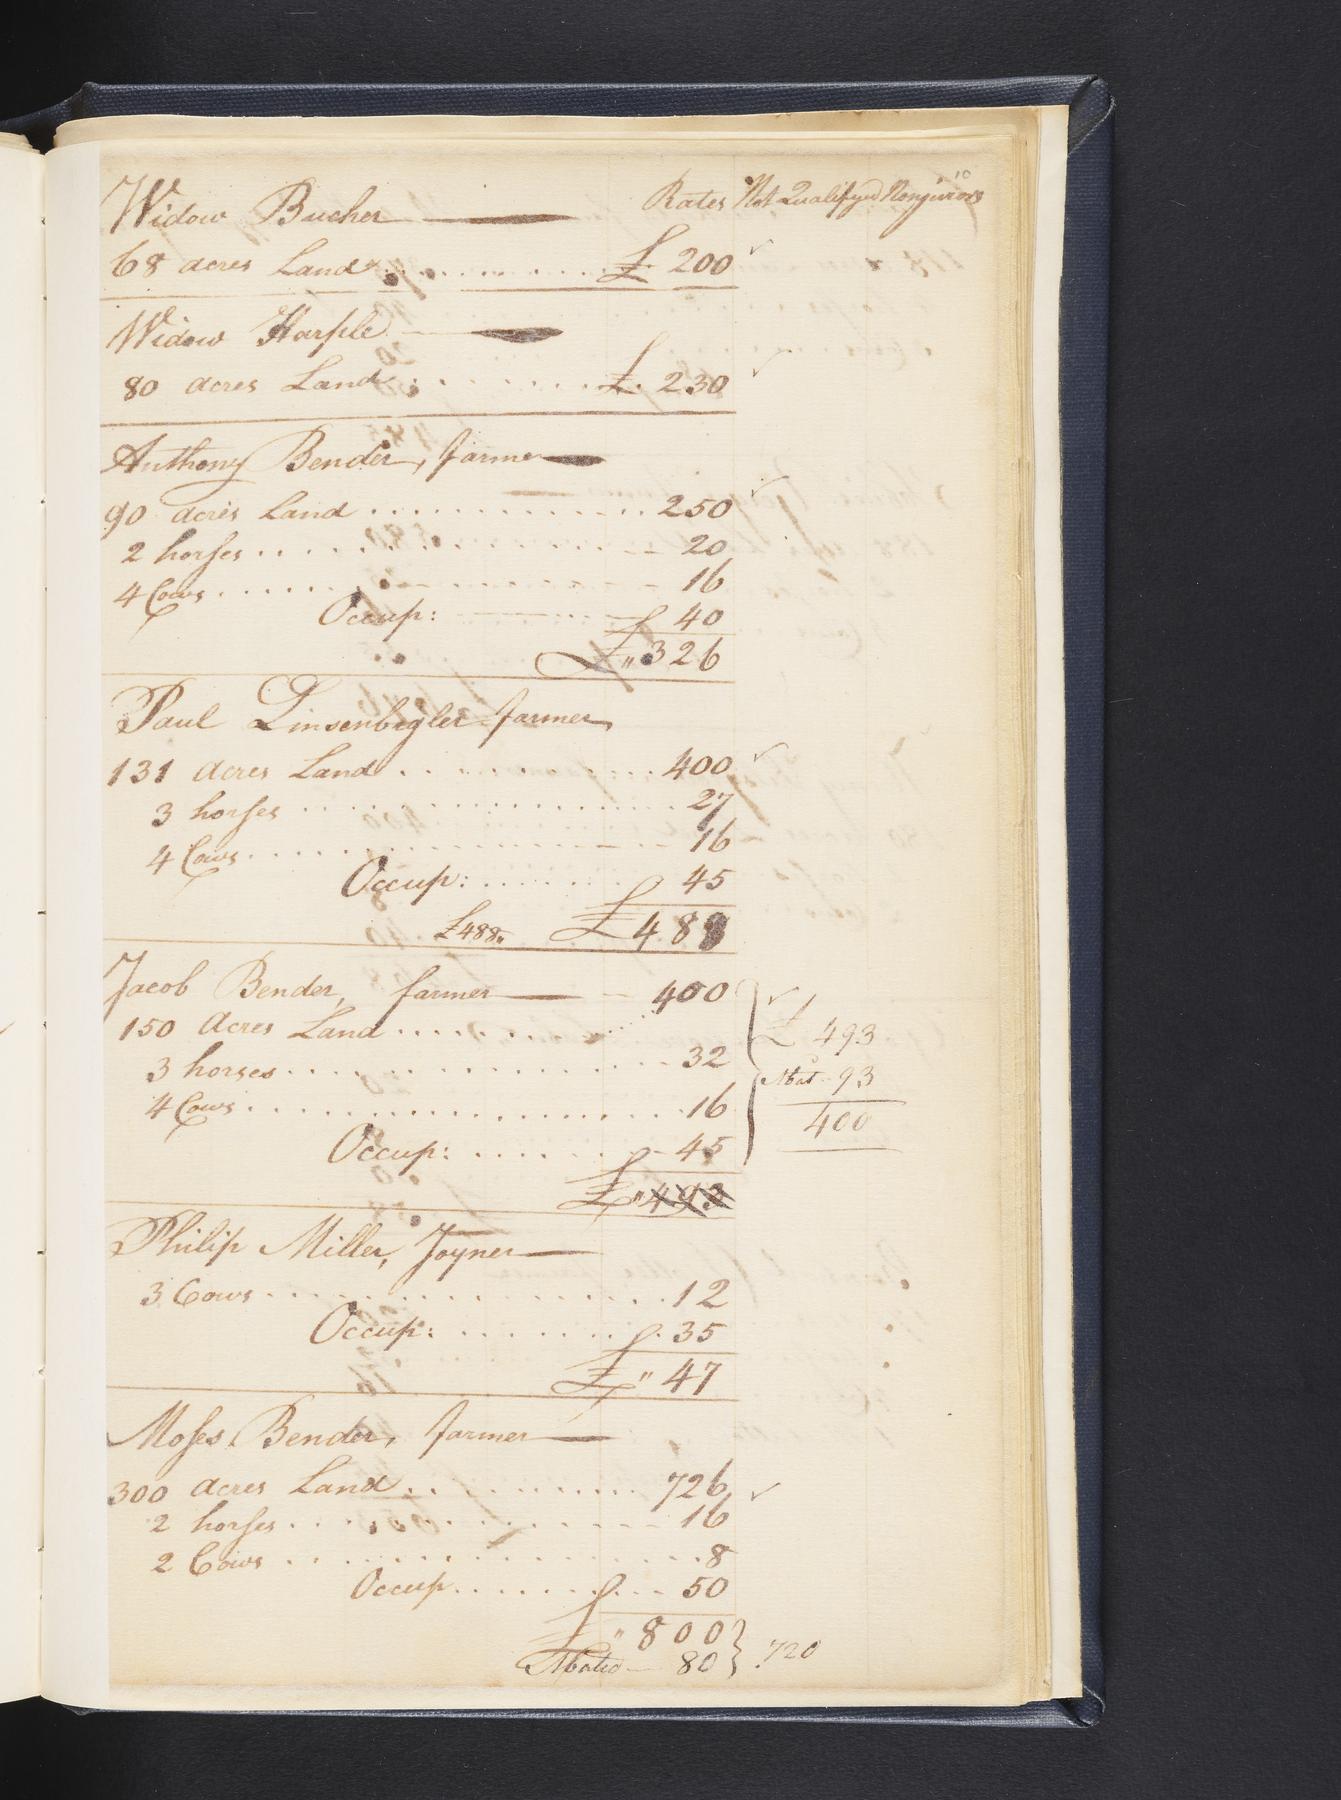 10
Widow Bucher Rates Not Qualifyed Nonjurors
68 acres Land £ 200
Widow Harple
80 acres Land £ 230
Anthony Bender, farmer
90 acres Land 250
2 horses 20
4 Cows 16
Occup: 40
£ " 326
Paul Linsenbigler farmer
131 acres Land 400
3 horses 27
4 Cows 16
Occup: 45
£488 " £ 488
Jacob Bender, farmer 400
150 Acres Land £ 493
3 horses 32 Abat 93
4 Cows 16 400
Occup: 45
£ " 493
Philip Miller, Joyner
3 Cows 12
Occup: 35
£ " 47
Moses Bender, farmer
300 acres Land 726
2 horses 16
2 Cows 8
Occup 50
£ " 800
Abated 80 720